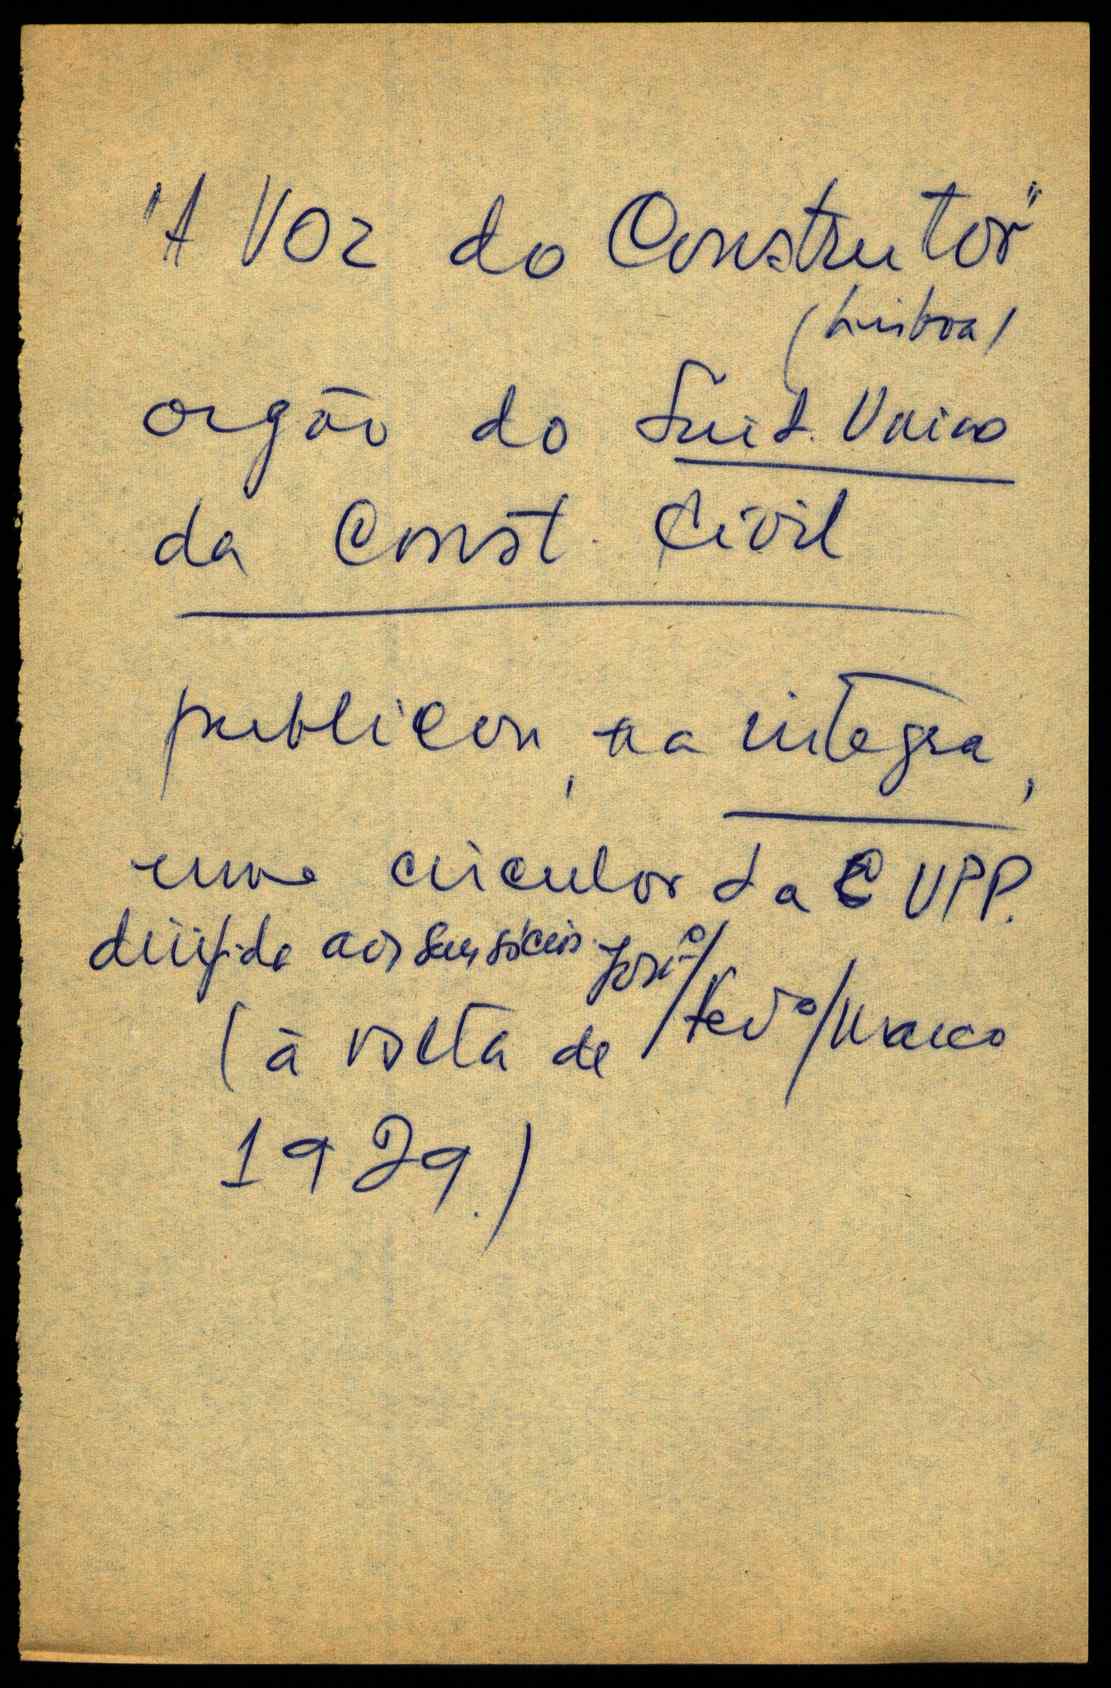 "A Voz do Construtor"
(Lisboa)
orgão do Sind. Unico
da Const. Civil
publicou, na integra,
uma circular da C UPP.
dirigida aos seus sócios.
(à volta de Janº/Fevº/Março
1929.)